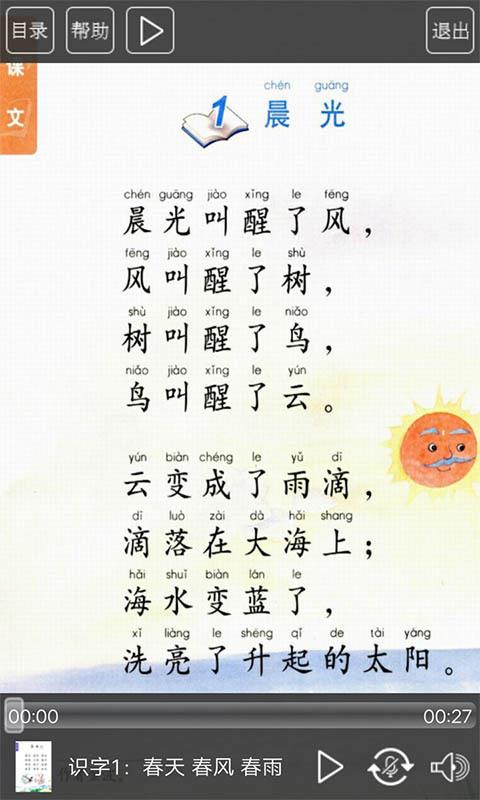 目录 帮助 退出
课文
chén guāng
1 晨 光
chén guāng jiào xǐng le fēng
晨光叫醒了风，
fēng jiào xǐng le shù
风叫醒了树，
shù jiào xǐng le niǎo
树叫醒了鸟，
niǎo jiào xǐng le yún
鸟叫醒了云。
yún biàn chéng le yǔ dī
云变成了雨滴，
dī luò zài dà hǎi shang
滴落在大海上；
hǎi shuǐ biàn lán le
海水变蓝了，
xǐ liàng le shēng qǐ de tài yáng
洗亮了升起的太阳。
00:00 00:27
识字1：春天 春风 春雨